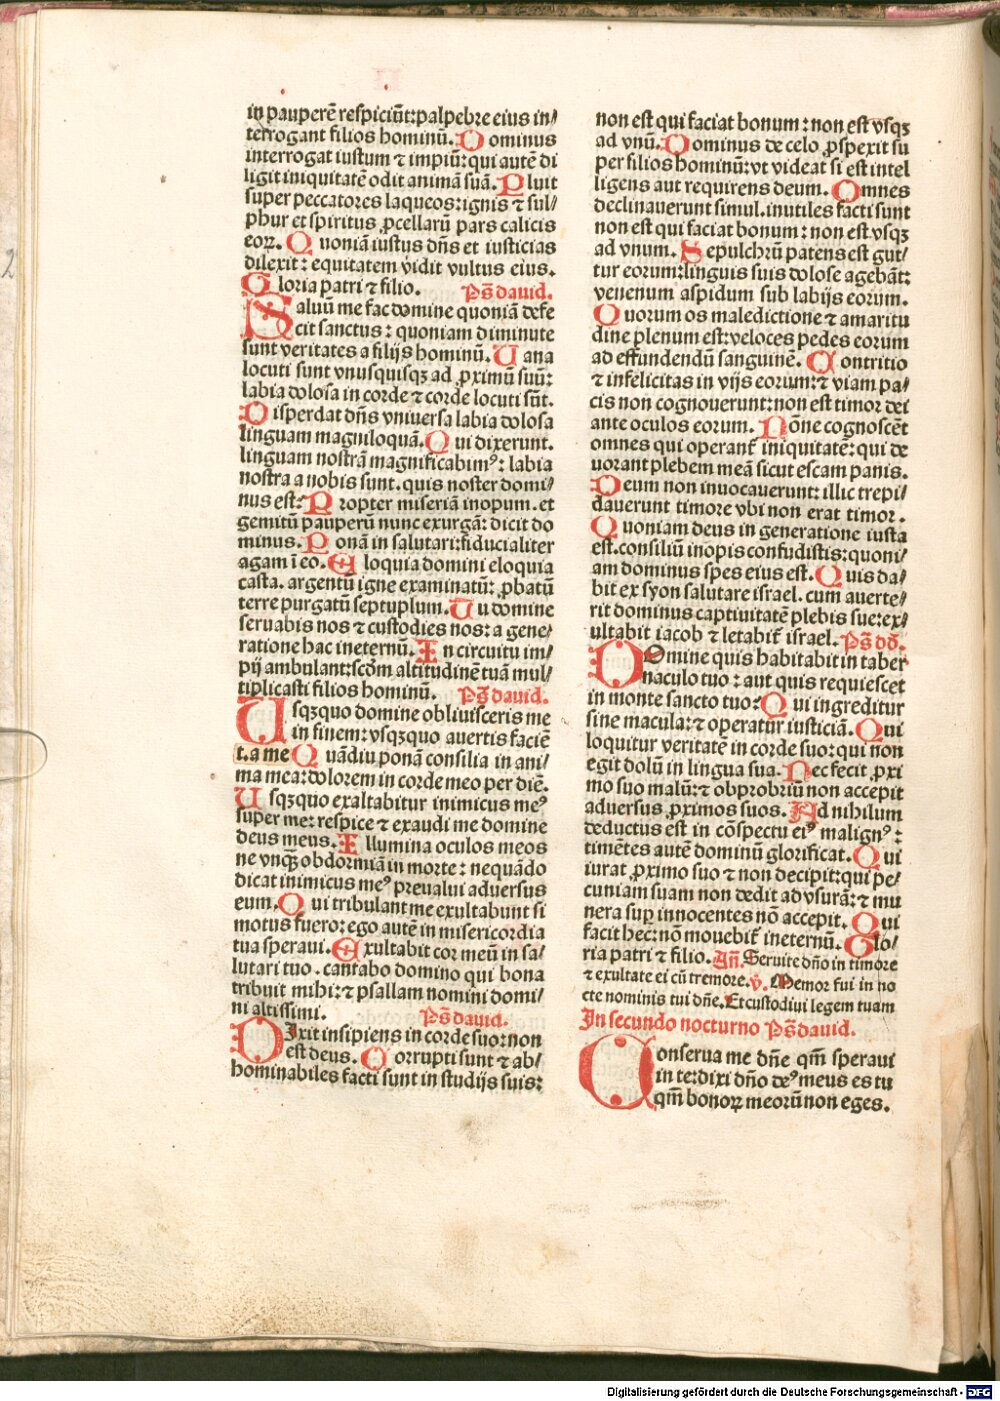 in pauperē respiciūt: palpebre eius in⸗
terrogant filios hominū. Dominus
interrogat iustum ⁊ impiū: qui autē di
ligit iniquitatē odit animā suā. Pluit
super peccatores laqueos: ignis ⁊ sul⸗
phur et spiritus ꝓcellarū pars calicis
eoꝝ. Quoniā iustus dn̄s et iusticias
dilexit: equitatem vidit vultus eius.
Gloria patri ⁊ filio. Ps̄ dauid.
Saluū me fac domine quoniā defe
cit sanctus: quoniam diminute
sunt veritates a filijs hominū. Uana
locuti sunt vnusquisqꝫ ad ꝓximū suū:
labia dolosa in corde ⁊ corde locuti sūt.
Disperdat dn̄s vniuersa labia dolosa
linguam magniloquā. Qui dixerunt.
linguam nostrā magnificabimꝰ: labia
nostra a nobis sunt. quis noster domi⸗
nus est: Propter miseriā inopum. et
gemitū pauperū nunc exurgā: dicit do
minus. Ponā in salutari: fiducialiter
agam ī eo. Eloquia domini eloquia
casta. argentū igne examinatū: ꝓbatū
terre purgatū septuplum. Tu domine
seruabis nos ⁊ custodies nos: a gene⸗
ratione hac in eternū. In circuitu im⸗
pij ambulant: scd̄m altitudinē tuā mul⸗
tiplicasti filios hominū. Ps̄ dauid.
Usqꝫquo domine obliuisceris me
in finem: vsqꝫquo auertis faciē
t. a me Quādiu ponā consilia in ani⸗
ma mea: dolorem in corde meo per diē.
Usqꝫquo exaltabitur inimicus meꝰ
super me: respice ⁊ exaudi me domine
deus meus. Illumina oculos meos
ne vnqꝫ̄ obdormiā in morte: nequādo
dicat inimicus meꝰ preualui aduersus
eum. Qui tribulant me exultabunt si
motus fuero: ego autē in misericordia
tua speraui. Exultabit cor meū in sa⸗
lutari tuo. cantabo domino qui bona
tribuit mihi: ⁊ psallam nomini domi⸗
ni altissimi. Ps̄ dauid.
Dixit insipiens in corde suo: non
est deus. Corrupti sunt ⁊ ab⸗
hominabiles facti sunt in studijs suis:
non est qui faciat bonum: non est vsqꝫ
ad vnū. Dominus de celo ꝓspexit su
per filios hominū: vt videat si est intel
ligens aut requirens deum. Omnes
declinauerunt simul. inutiles facti sunt
non est qui faciat bonum: non est vsqꝫ
ad vnum. Sepulchrū patens est gut⸗
tur eorum: linguis suis dolose agebāt:
venenum aspidum sub labijs eorum.
Quorum os maledictione ⁊ amaritu
dine plenum est: veloces pedes eorum
ad effundendū sanguinē. Contritio
⁊ infelicitas in vijs eorum: ⁊ viam pa⸗
cis non cognouerunt: non est timor dei
ante oculos eorum. Nōne cognoscēt
omnes qui operant̄ iniquitatē: qui de
uorant plebem meā sicut escam panis.
Deum non inuocauerunt: illic trepi⸗
dauerunt timore vbi non erat timor.
Quoniam deus in generatione iusta
est. consiliū inopis confudistis: quoni⸗
am dominus spes eius est. Quis da⸗
bit ex syon salutare israel. cum auerte⸗
rit dominus captiuitatē plebis sue: ex⸗
ultabit iacob ⁊ letabit̄ israel. Ps̄ dd̄.
Domine quis habitabit in taber
naculo tuo: aut quis requiescet
in monte sancto tuo: Qui ingreditur
sine macula: ⁊ operatur iusticiā. Qui
loquitur veritatē in corde suo: qui non
egit dolū in lingua sua. Nec fecit ꝓxi
mo suo malū: ⁊ obprobriū non accepit
aduersus ꝓximos suos. Ad nihilum
deductus est in cōspectu eiꝰ malignꝰ:
timētes autē dominū glorificat. Qui
iurat ꝓximo suo ⁊ non decipit: qui pe⸗
cuniam suam non dedit ad vsurā: ⁊ mu
nera suꝑ innocentes nō accepit. Qui
facit hec: nō mouebit̄ in eternū. Glo⸗
ria patri ⁊ filio. An̄. Seruite dn̄o in timore
⁊ exultate ei cū tremore. v̄. Memor fui in no
cte nominis tui dn̄e. Et custodiui legem tuam
In secundo nocturno Ps̄ dauid.
Conserua me dn̄e qm̄ speraui
in te: dixi dn̄o deꝰ meus es tu
qm̄ bonoꝝ meorū non eges.
2
Digitalisierung gefördert durch die Deutsche Forschungsgemeinschaft - DFG